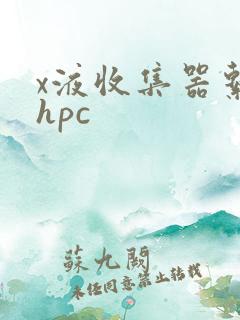 x液收集器
hpc
蘇九闕
未经同意禁止转载